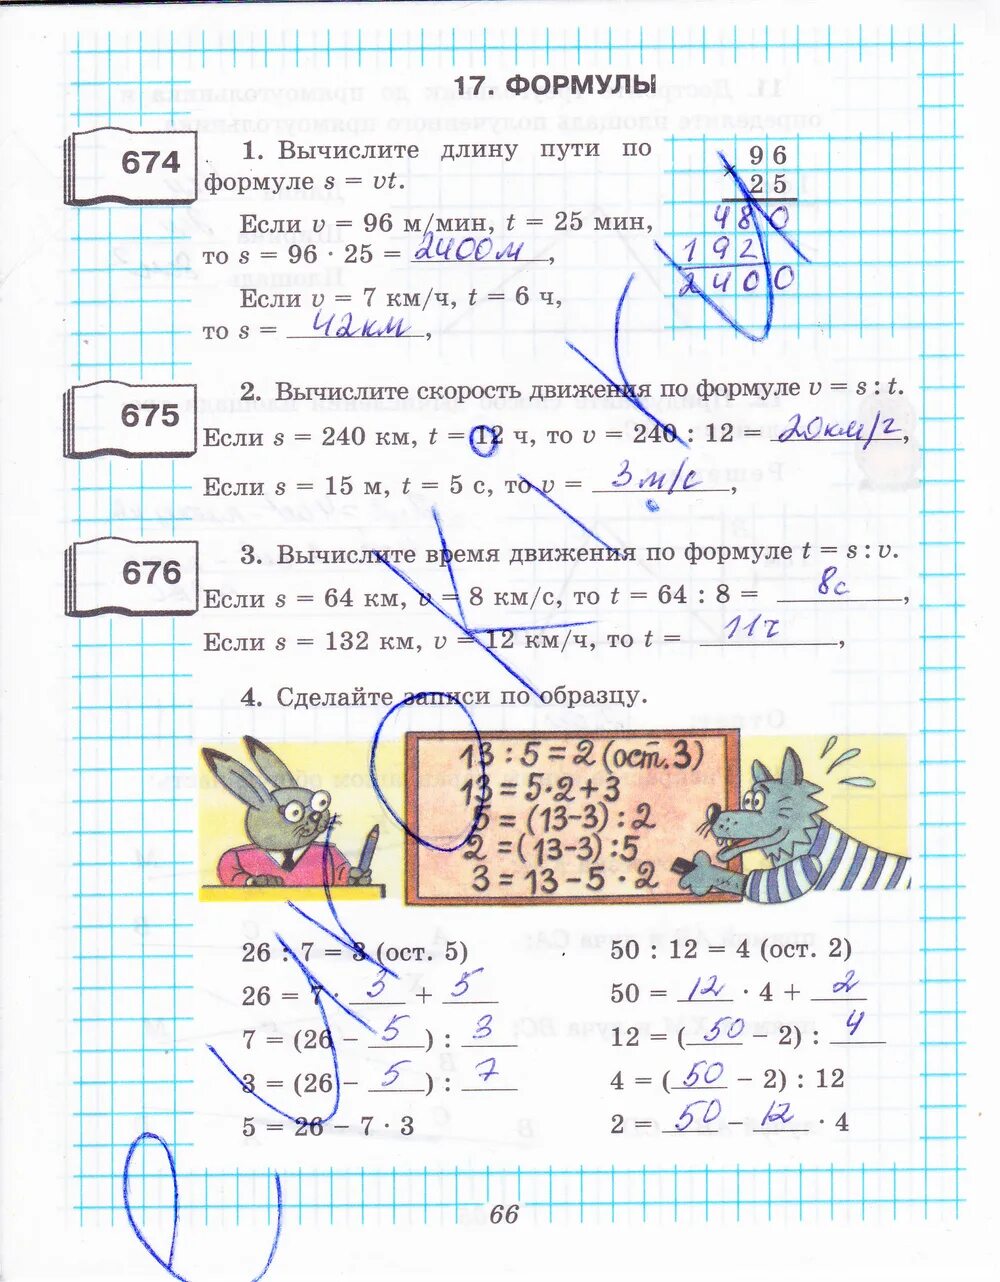 17. ФОРМУЛЫ
674
1. Вычислите длину пути по
формуле s = vt.
Если v = 96 м/мин, t = 25 мин,
то s = 96 · 25 = 2400м,
Если v = 7 км/ч, t = 6 ч,
то s = 42км,
96
× 25
480
192
2400
675
2. Вычислите скорость движения по формуле v = s : t.
Если s = 240 км, t = 12 ч, то v = 240 : 12 = 20км/ч,
Если s = 15 м, t = 5 с, то v = 3м/с,
676
3. Вычислите время движения по формуле t = s : v.
Если s = 64 км, v = 8 км/с, то t = 64 : 8 = 8с,
Если s = 132 км, v = 12 км/ч, то t = 11ч,
4. Сделайте записи по образцу.
13 : 5 = 2 (ост. 3)
13 = 5·2+3
5 = (13-3) : 2
2 = (13-3) : 5
3 = 13 - 5 · 2
26 : 7 = 3 (ост. 5)
26 = 7 · 3 + 5
7 = (26 – 5) : 3
3 = (26 – 5) : 7
5 = 26 – 7 · 3
50 : 12 = 4 (ост. 2)
50 = 12 · 4 + 2
12 = (50 – 2) : 4
4 = (50 – 2) : 12
2 = 50 – 12 · 4
66